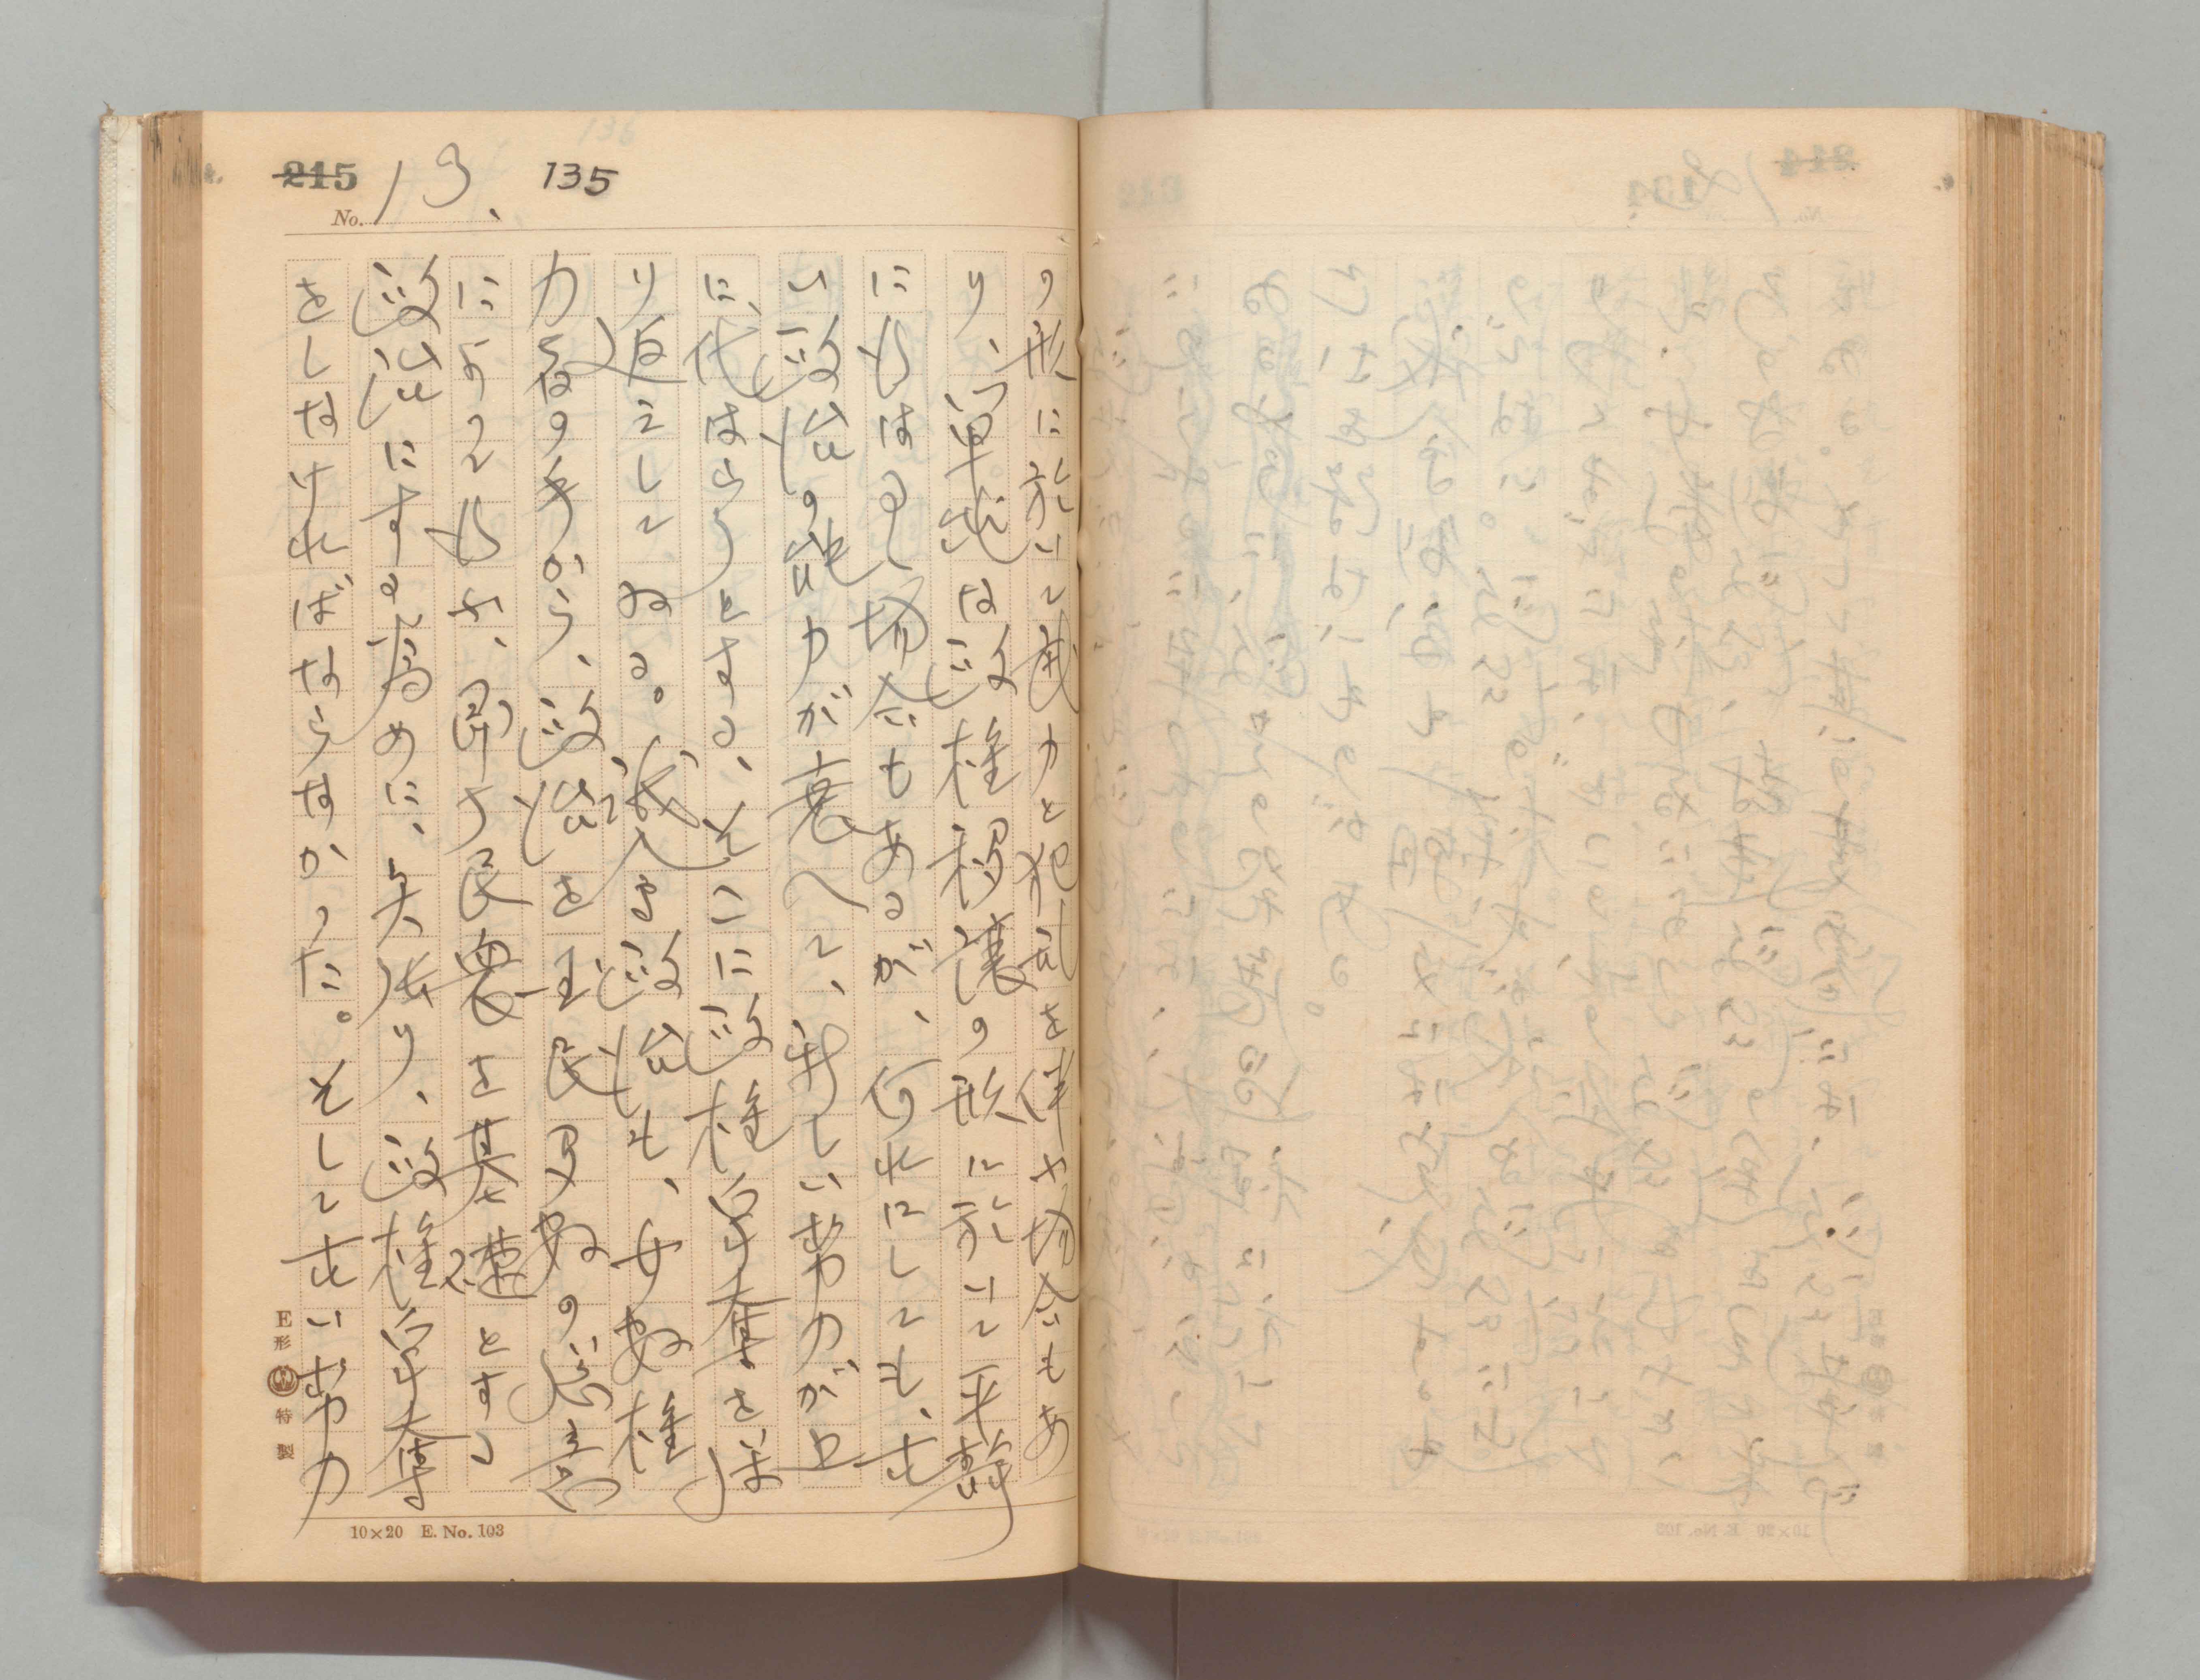 215 13、 135
No.
の形に於いて武力と犯乱を伴ふ場合もあ
り、単純な政権移譲の形に於いて平静
に行はるゝ場合もあるが、何れにしても、古
い政治の能力が衰へて、新しい勢力が之
に代はらうとする、そこに政権争奪を繰
り返えしてゐる。政治も、少数権
力者の手から、政治を全民多数の総意
によつて行ふ、即ち民衆を基礎とする
政治にする為めに、矢張り、政権争奪
をしなければならなかつた。そして古い勢力
E形 特製
10×20 E. No. 103